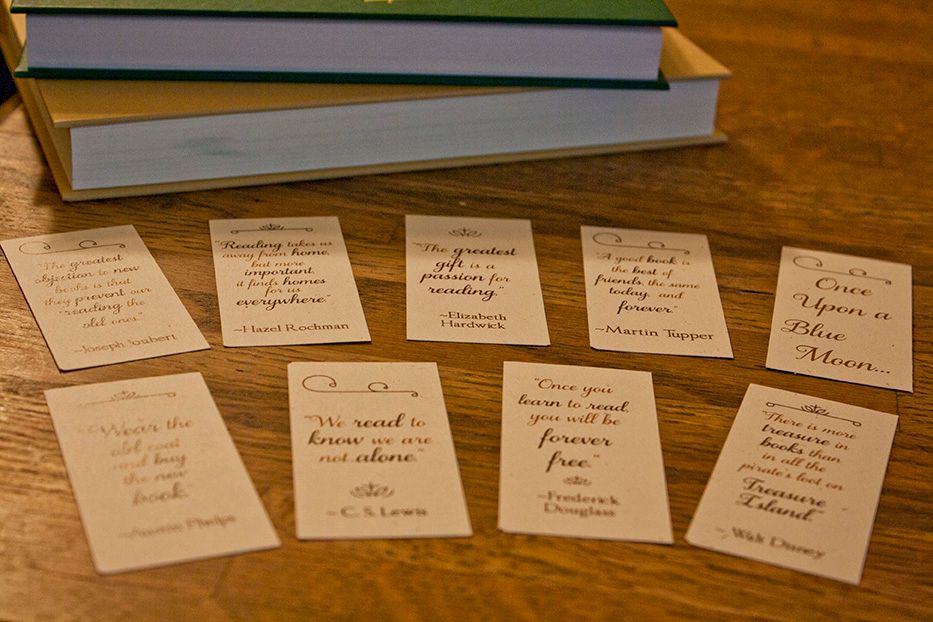 "The greatest
objection to new
books is that
they prevent our
"reading the
old ones"
~Joseph Joubert
"Reading takes us
away from home,
but more
important,
it finds homes
for us
everywhere."
~Hazel Rochman
"The greatest
gift is a
passion for
reading."
~Elizabeth
Hardwick
"A good book is
the best of
friends, the same
today, and
forever."
~Martin Tupper
Once
Upon a
Blue
Moon...
"Wear the
old coat
and buy
the new
book."
~Austin Phelps
"We read to
know we are
not alone."
~C. S. Lewis
"Once you
learn to read,
you will be
forever
free."
~Frederick
Douglass
"There is more
treasure in
books than
in all the
pirate's loot on
Treasure
Island."
~Walt Disney